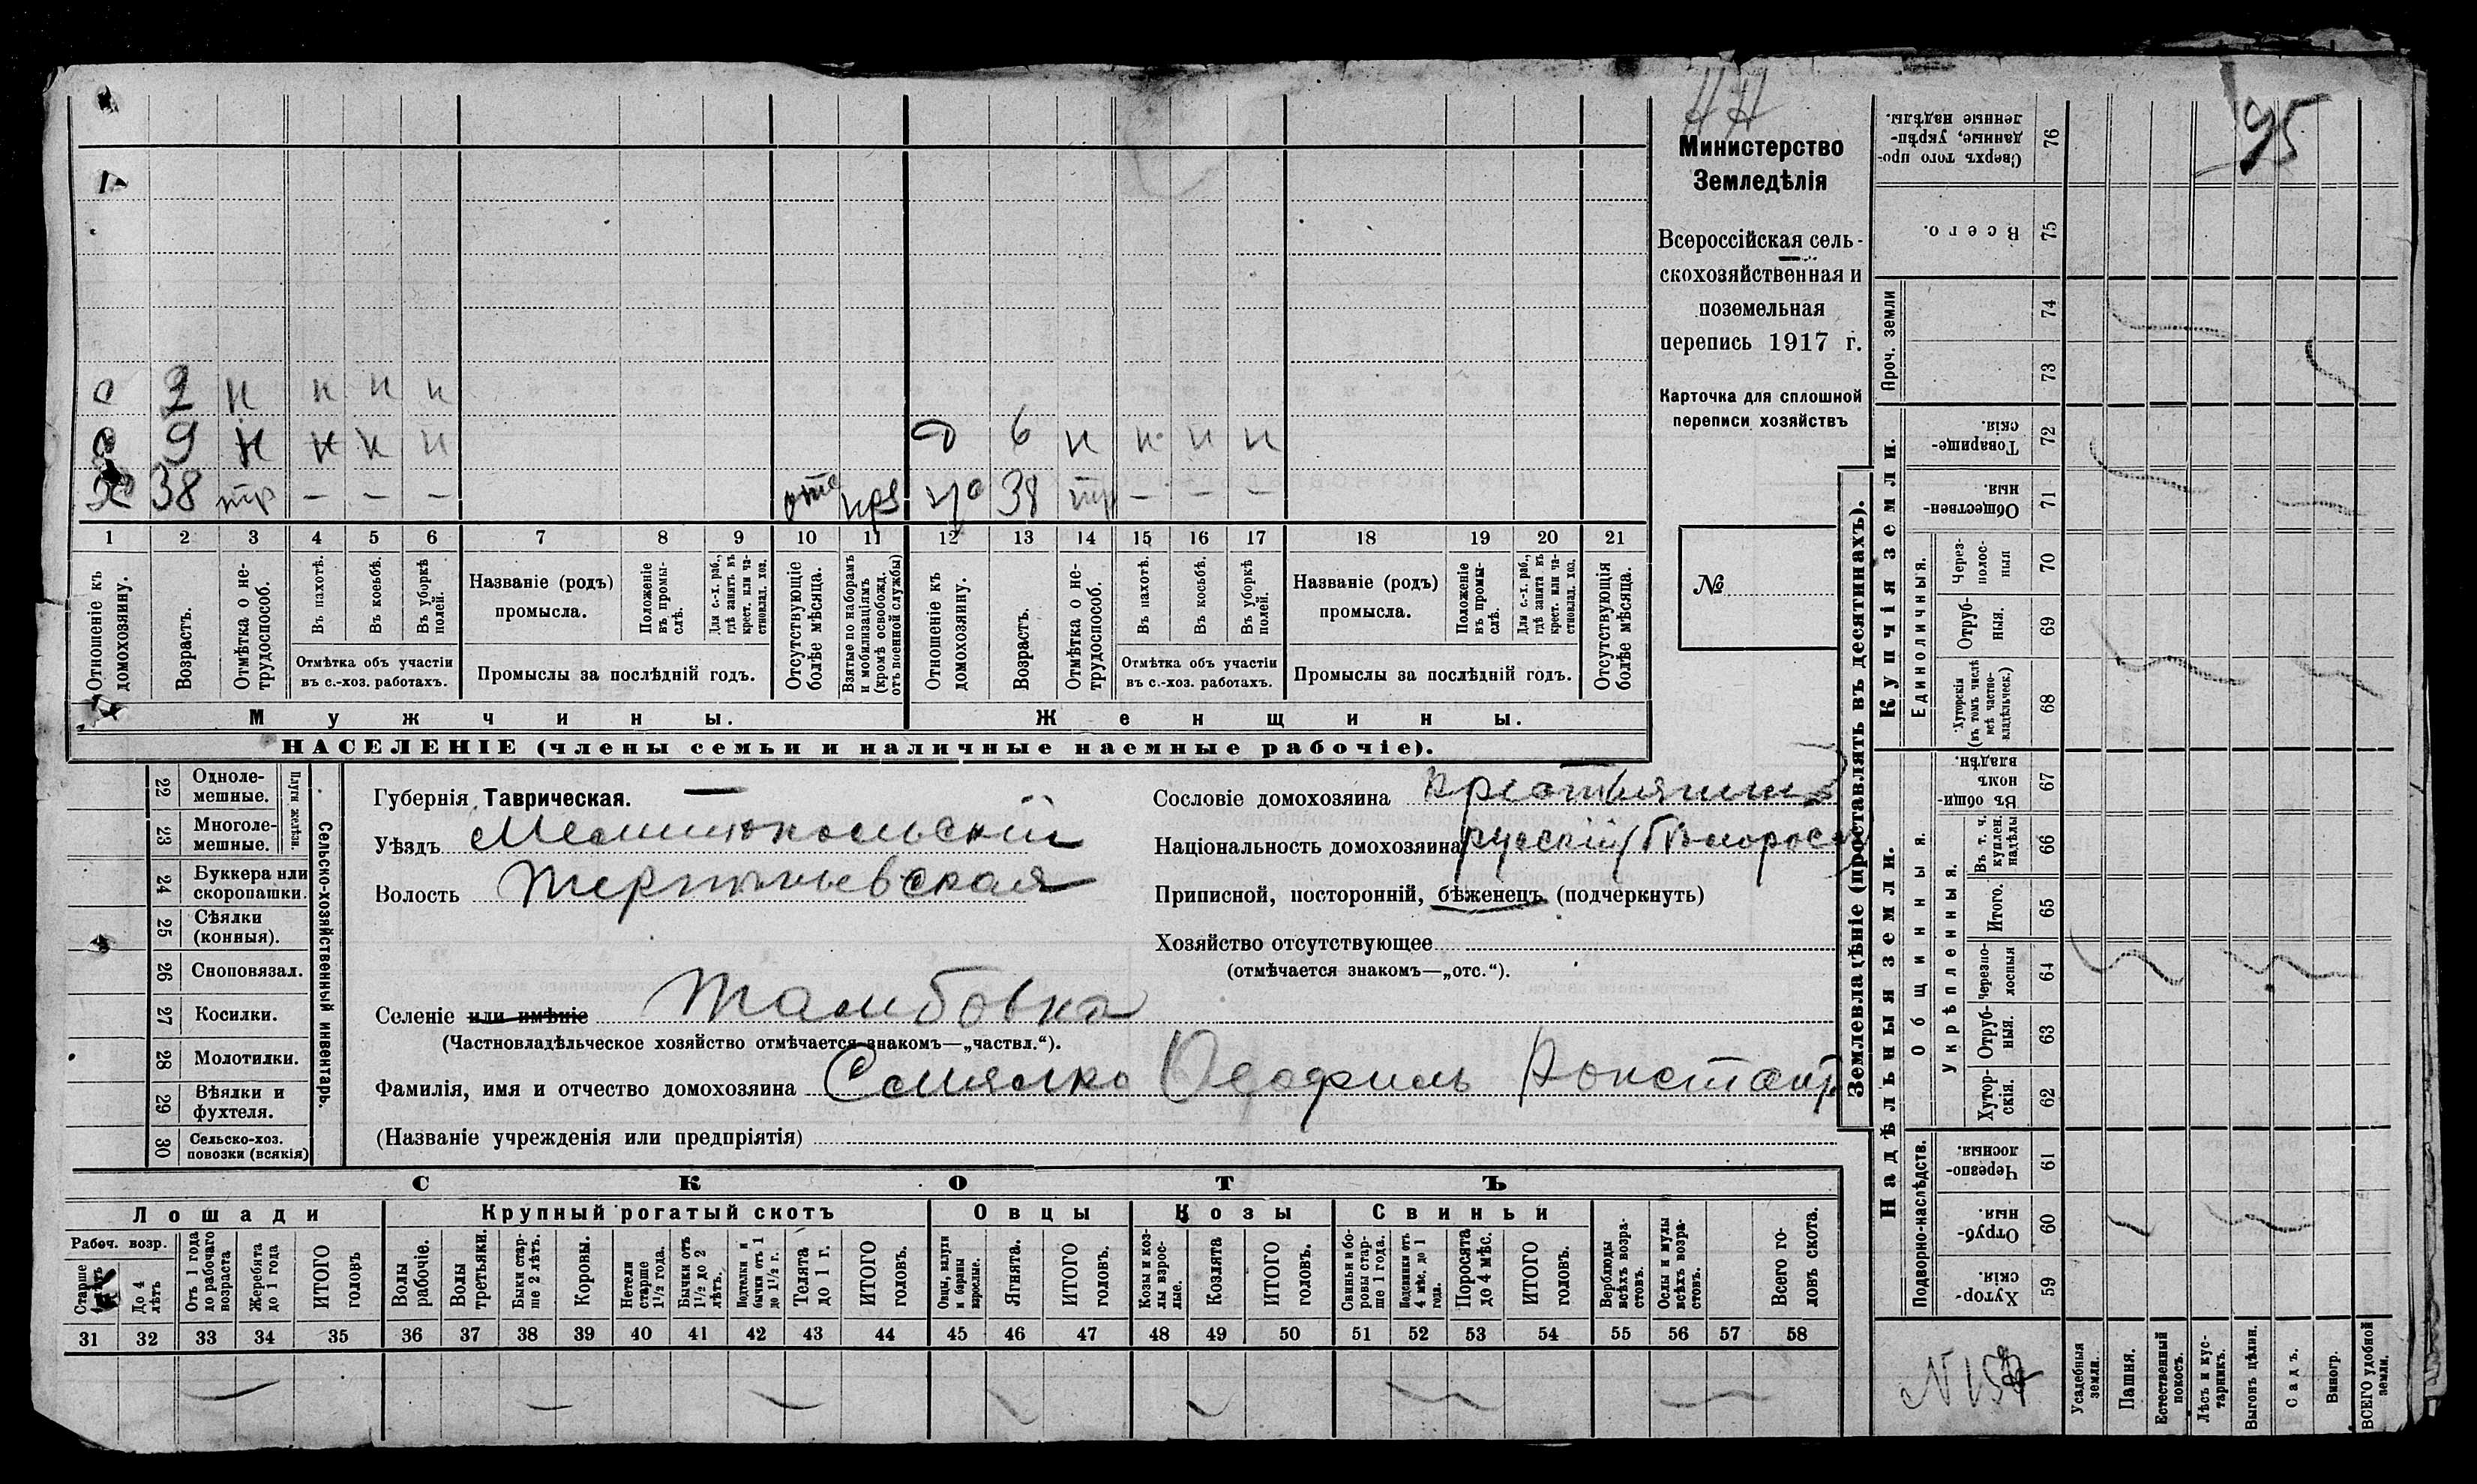 95
Министерство
Земледѣлія
Всероссійская сель-
скохозяйственная и
поземельная
перепись 1917 г.
Карточка для сплошной
переписи хозяйствъ
№
с 2 н н н н
с 9 н н н н д 6 н н н н
х 38 тр — — — отс 38 тр — — —
1 2 3 4 5 6 7 8 9 10 11 12 13 14 15 16 17 18 19 20 21
Отношеніе къ домохозяину.
Возрастъ.
Отмѣтка о не-трудоспособ.
Въ пахотѣ.
Въ косьбѣ.
Въ уборкѣ полей.
Отмѣтка объ участіи
въ с.-хоз. работахъ.
Названіе (родъ)
промысла.
Положеніе въ промы-слѣ.
Для с.-х. раб., гдѣ занятъ въ крест. или ча-стновлад. хоз.
Промыслы за послѣдній годъ.
Отсутствующіе болѣе мѣсяца.
Взятые по наборамъ и мобилизаціямъ (кромѣ освобожд. отъ военной службы)
Отношеніе къ домохозяину.
Возрастъ.
Отмѣтка о не-трудоспособ.
Въ пахотѣ.
Въ косьбѣ.
Въ уборкѣ полей.
Отмѣтка объ участіи
въ с.-хоз. работахъ.
Названіе (родъ)
промысла.
Положеніе въ промы-слѣ.
Для с.-х. раб., гдѣ занята въ крест. или ча-стновлад. хоз.
Промыслы за послѣдній годъ.
Отсутствующія болѣе мѣсяца.
Мужчины.
Женщины.
НАСЕЛЕНІЕ (члены семьи и наличные наемные рабочіе).
Сельско-хозяйственный инвентарь.
Плуги желѣзн.
22 Одноле-мешные.
23 Многоле-мешные.
24 Буккера или скоропашки.
25 Сѣялки (конныя).
26 Сноповязал.
27 Косилки.
28 Молотилки.
29 Вѣялки и фухтеля.
30 Сельско-хоз. повозки (всякія)
Губернія Таврическая.
Уѣздъ Мелитопольскій
Волость Терпѣньевская
Сословіе домохозяина крестьянинъ
Національность домохозяина русскій
Приписной, посторонній, бѣженецъ (подчеркнуть)
Хозяйство отсутствующее
(отмѣчается знакомъ—„отс.“).
Селеніе или имѣніе Тамбовка
(Частновладѣльческое хозяйство отмѣчается знакомъ—„частвл.“).
Фамилія, имя и отчество домохозяина Констант
(Названіе учрежденія или предпріятія)
СКОТЪ
Лошади
Крупный рогатый скотъ
Овцы
Козы
Свиньи
Рабоч. возр.
Старше
До 4 лѣтъ
Отъ 1 года до рабочаго возраста
Жеребята до 1 года
ИТОГО головъ
Волы рабочіе.
Волы третьяки.
Быки стар-ше 2 лѣтъ.
Коровы.
Нетели старше 1½ года.
Бычки отъ 1½ до 2 лѣтъ.
Подтелки и бычки отъ 1 до 1½ г.
Телята до 1 г.
ИТОГО головъ.
Овцы, валухи и бараны взрослые.
Ягнята.
ИТОГО головъ.
Козы и коз-лы взрос-лые.
Козлята
ИТОГО головъ.
Свиньи и бо-ровы стар-ше 1 года.
Подсвинки отъ 4 мѣс. до 1 года.
Поросята до 4 мѣс.
ИТОГО головъ.
Верблюды всѣхъ возра-стовъ.
Ослы и мулы всѣхъ возра-стовъ.
Всего го-ловъ скота.
31 32 33 34 35 36 37 38 39 40 41 42 43 44 45 46 47 48 49 50 51 52 53 54 55 56 57 58
Землевладѣніе (проставлять въ десятинахъ).
Купчія земли.
Надѣльныя земли.
Сверхъ того про-данные, укрѣп-ленные надѣлы. 76
Всего. 75
Проч. земли
74
73
Товарище-скія 72
Обществен-ныя 71
Единоличныя.
Через-полос-ныя 70
Отруб-ныя. 69
Хуторскія (въ томъ числѣ всѣ частно-владѣльческ.) 68
Общинныя.
Въ общи-номъ владѣн. 67
Укрѣпленныя.
Въ т. ч. куплен. надѣлы 66
Итого. 65
Черезпо-лосныя 64
Отруб-ныя. 63
Хутор-скія. 62
Подворно-наслѣдств.
Черезпо-лосныя. 61
Отруб-ныя. 60
Хутор-скія. 59
Усадебныя земли.
Пашня.
Естественный покосъ.
Лѣсъ и кус-тарникъ.
Выгонъ цѣлин.
Садъ.
Виногр.
ВСЕГО удобной земли.